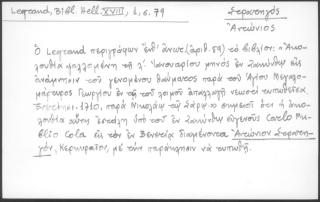 Legrand, Bibl. Hell. XVIII, 1, σ. 79
Στρατηγός
Ἀντώνιος
Ὁ Legrand περιγράφων ἐπ' ἀνωτ. (ἀριθ. 59) τὸ βιβλίον: «Ἀκο-
λουθία ψαλλομένη τῇ α΄ Ἰανουαρίου μηνὸς ἐν Ζακύνθῳ εἰς
ἀνάμνησιν τοῦ γενομένου θαύματος παρὰ τοῦ Ἁγίου Μεγαλο-
μάρτυρος Γεωργίου ἐν τῇ τοῦ λοιμοῦ ἀπαλλαγῇ νεωστὶ τυπωθεῖσα,
1710, παρὰ Νικολάῳ τῷ Σάρῳ» σημειοῖ ὅτι ἡ ἀκο-
λουθία αὕτη ἐστάλη ὑπὸ τοῦ ἐν Ζακύνθῳ εὐγενοῦς Carlo Pu-
blio Cola εἰς τὸν ἐν Βενετίᾳ διαμένοντα Ἀντώνιον Στρατη-
γόν, Κερκυραῖον, μὲ τὴν παράκλησιν νὰ τυπωθῇ.